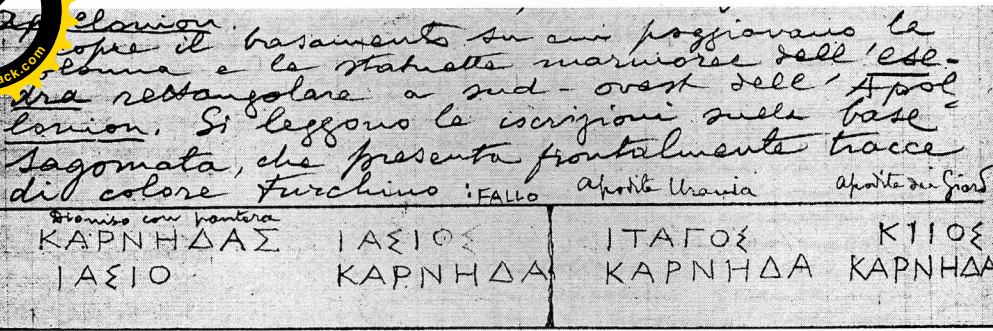 ack.com
il basamento su cui poggiavano le
e le statuette marmoree dell'ese-
dra rettangolare a sud-ovest dell'Apol
lonion. Si leggono le iscrizioni sulla base
sagomata, che presenta frontalmente tracce
di colore turchino : FALLO Afrodite Urania Afrodite dei Giard
Dioniso con pantera
ΚΑΡΝΗΔΑΣ ΙΑΣΙΟΣ ΙΤΑΓΟΣ ΚΤΙΟΣ
ΙΑΣΙΟ ΚΑΡΝΗΔΑ ΚΑΡΝΗΔΑ ΚΑΡΝΗΔΑ